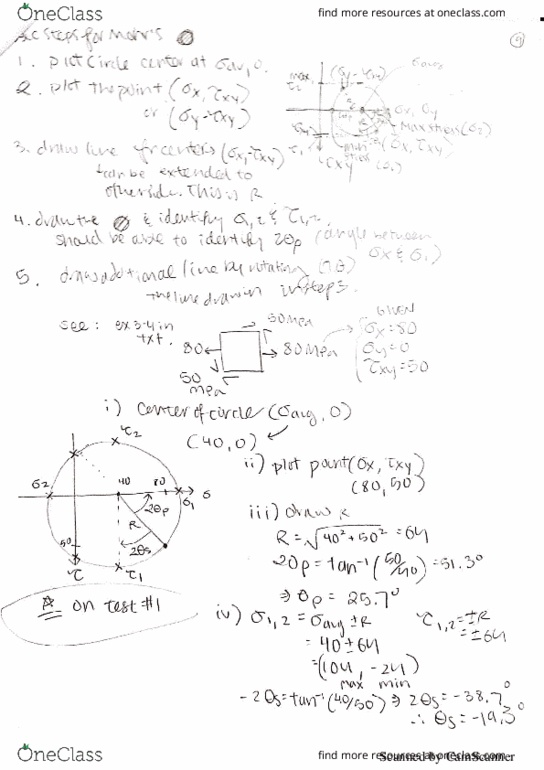 OneClass
find more resources at oneclass.com
Steps for Mohr's
9
1. plot Circle center at σavg, 0.
2. plot the point (σx, τxy)
or (σy - τxy)
3. draw line fr centers (σx, τxy)
can be extended to
other side. This is R
4. draw the & identify σ1,2 & τ1,2.
should be able to identify 2θp (angle between
σx & σ1)
5. draw additional line by rotating
the line drawn in step 3.
max
(σy - τxy)
σavg
σx, σy
Max stress (σ2)
(σx, τxy)
min
τxy
(σ1)
see: ex 3-4 in
txt.
50MPa
80
80 MPa
50
mPa
GIVEN
σx = 80
σy = 0
τxy = 50
i) center of circle (σavg, 0)
(40, 0)
ii) plot point (σx, τxy)
(80, 50)
τ2
σ2
40
80
σ
σ1
2θp
R
50
2θs
τ
τ1
iii) draw R
R = √40² + 50² = 64
2θp = tan⁻¹ (50/40) = 51.3°
⇒ θp = 25.7°
☆ on test #1
iv) σ1,2 = σavg ± R
= 40 ± 64
= (104, -24)
max min
τ1,2 = ± R
= ± 64
-2θs = tan⁻¹ (40/50) ⇒ 2θs = -38.7°
∴ θs = -19.3°
OneClass
find more resources at oneclass.com
Scanned by CamScanner